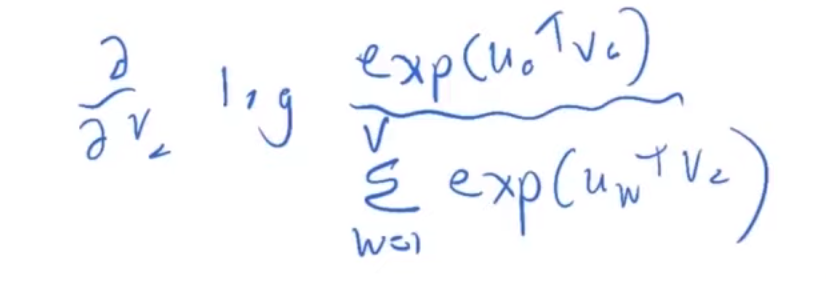 ∂/∂v_c log exp(u_o^T v_c) / Σ_{w=1}^{V} exp(u_w^T v_c)